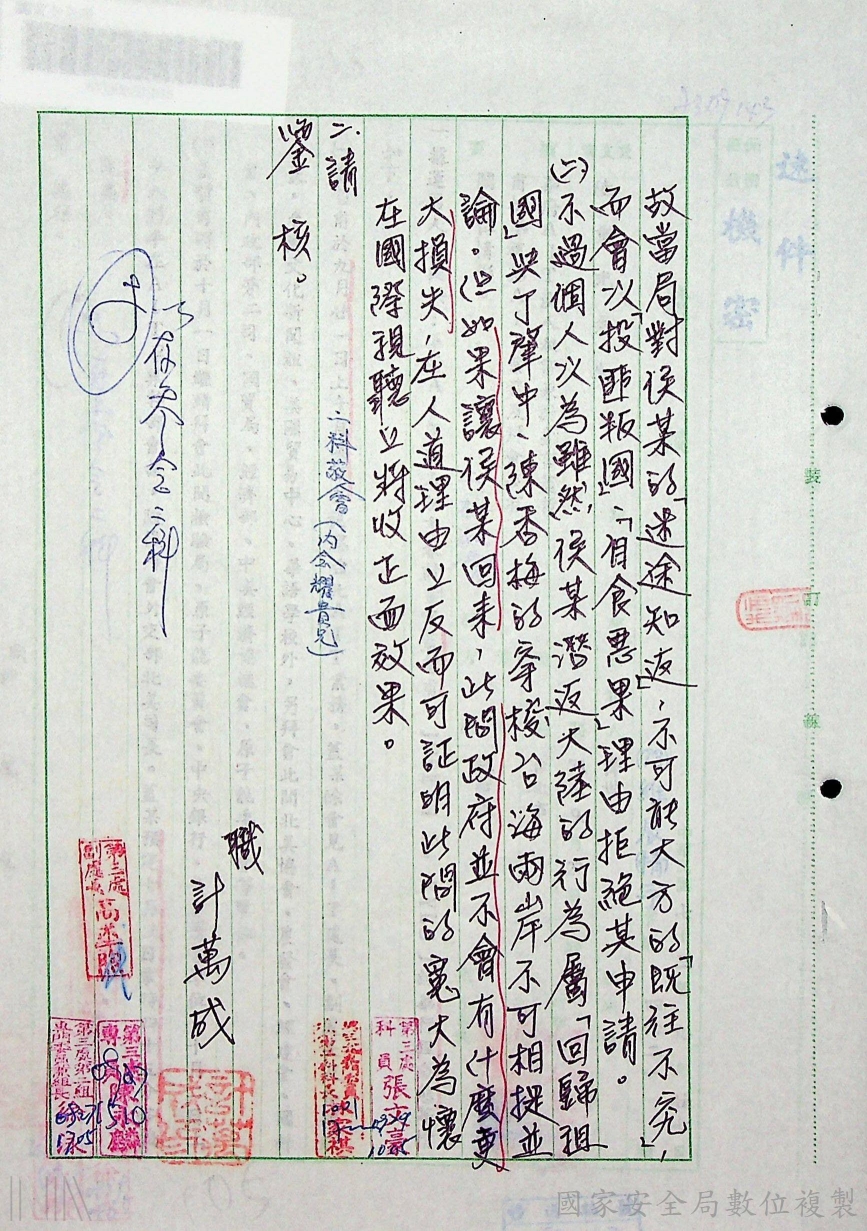 速件
機密
故當局對侯某的「迷途知返」,不可能大方的「既往不究」,
而會以「投匪叛國」、「自食惡果」理由拒絕其申請。
(六)不過個人以為雖然侯某潛返大陸的行為屬「回歸祖
國」與丁肇中、陳香梅的穿梭台海兩岸不可相提並
論。但如果讓侯某回來,此間政府並不會有什麼更
大損失,在人道理由上反而可証明此間的寬大為懷
在國際視聽上將收正面效果。
二、請
鑒核。
二科敬會(內会耀貴兄)
職
計萬成
存參会二科
第三處
科員 張文豪
第三處
副處長 高
裝
訂
線
國家安全局數位複製